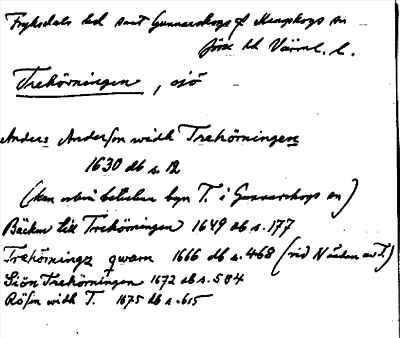 Fryksdals hd samt Gunnarskogs o Mangskogs sn
Jösse hd Värml. l.
Trekörningen, sjö
Anders Anderson widh Trekörningen
1630 db s. 12
(kan betechna byn T. i Gunnarskogs sn)
Bäcken till Trekörningen 1649 db s. 177
Trekörningz qwarn 1666 db s. 468 (vid N änden av T.)
Siön Trekörningen 1672 db s. 584
Rösen widh T. 1675 db s. 615